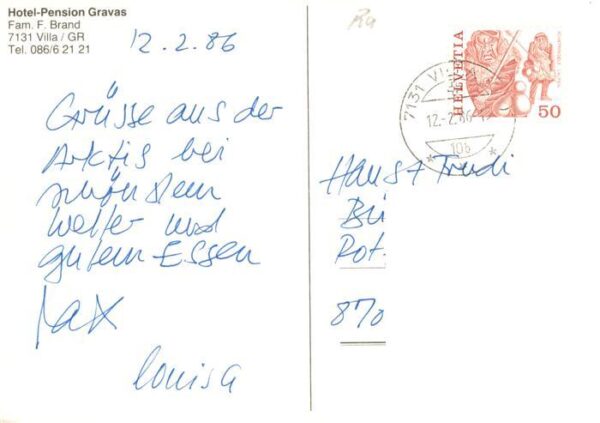 Hotel-Pension Gravas
Fam. F. Brand
7131 Villa / GR
Tel. 086/6 21 21
12.2.86
Grüsse aus der
Arktis bei
schönstem
Wetter und
gutem Essen
Max
Louisa
HELVETIA
50
7131 VI
12.-2.86
Hans + Trudi
Bü
Rot.
870